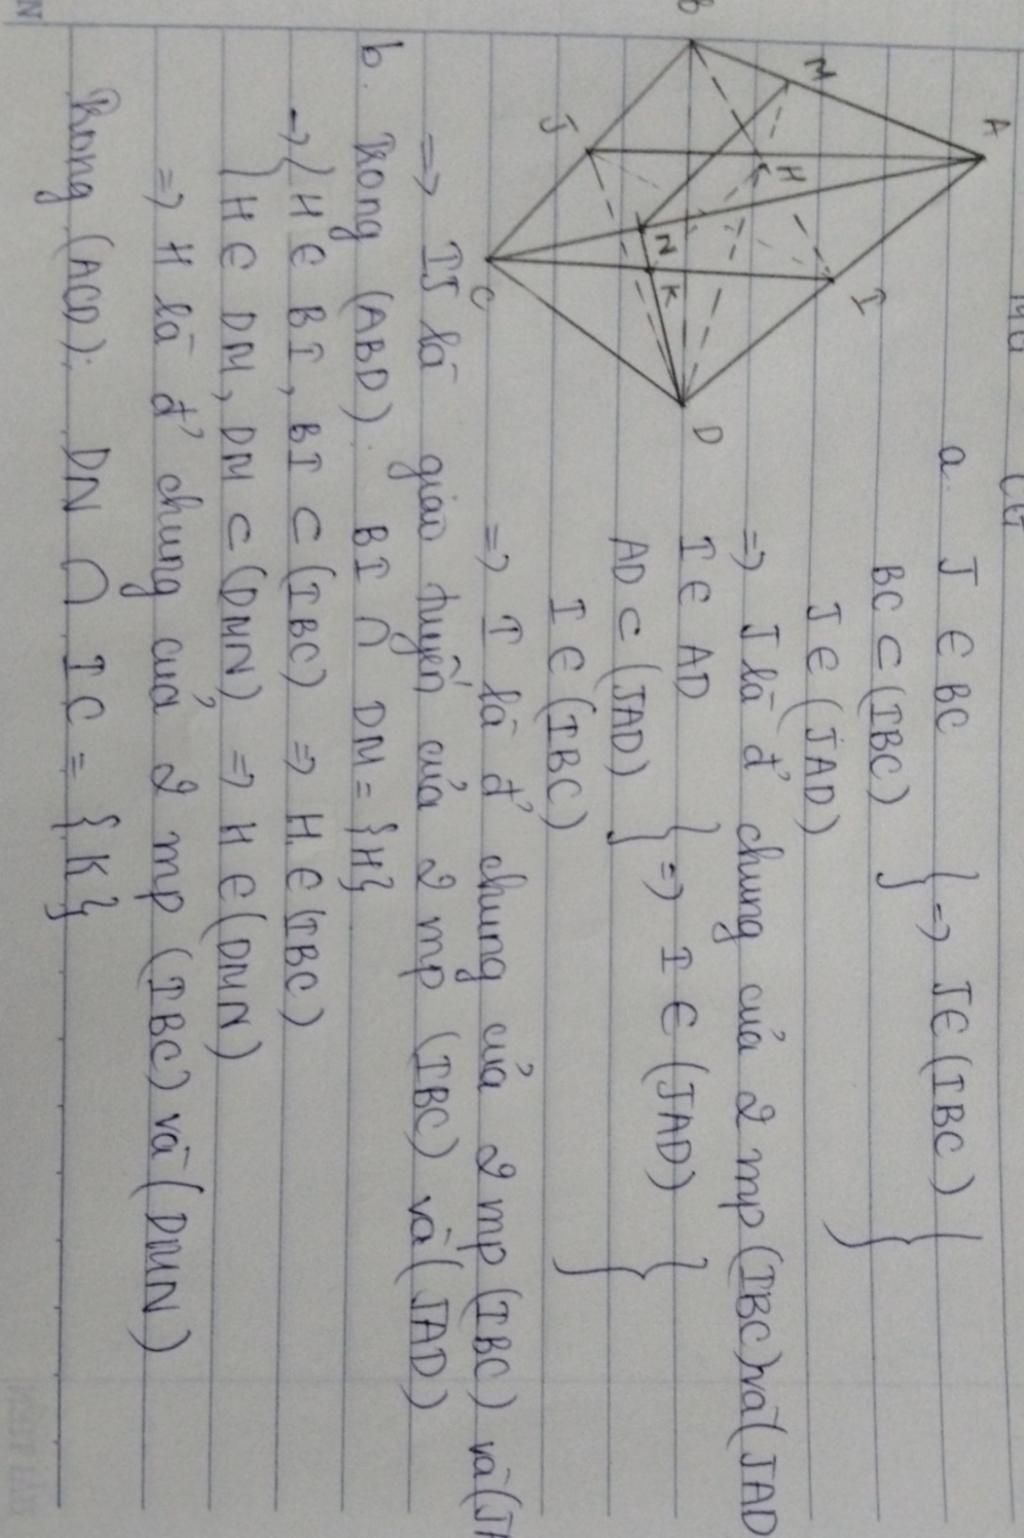 A
M
B
H
I
J
N
K
C
D
a. J ∈ BC } => J ∈ (IBC) }
BC ⊂ (IBC)
J ∈ (JAD)
=> J là đ' chung của 2 mp (IBC) và (JAD
I ∈ AD } => I ∈ (JAD) }
AD ⊂ (JAD)
I ∈ (IBC)
=> I là đ' chung của 2 mp (IBC) và (JA
=> IJ là giao tuyến của 2 mp (IBC) và (JAD)
b. Trong (ABD): BI ∩ DM = {H}
→ { H ∈ BI, BI ⊂ (IBC) => H ∈ (IBC)
H ∈ DM, DM ⊂ (DMN) => H ∈ (DMN)
=> H là đ' chung của 2 mp (IBC) và (DMN)
Trong (ACD): DN ∩ IC = {K}